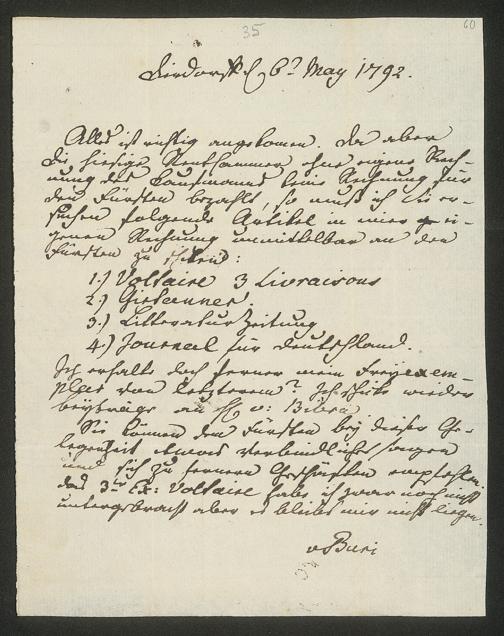 35
60
Dierdorf d 6t May 1792.
Alles ist richtig angekomen. Da aber
die hiesige Rentkammer ohne eigene Rech-
nung des Kaufmanns keine Rechnung für
den Fürsten bezahlt, so muß ich Sie er-
suchen folgende Artikel in einer ei-
genen Rechnung unmittelbar an den
Fürsten zu schiken:
1.) Voltaire 3 Livraisons
2.) Girtanner.
3.) Litteratur Zeitung
4.) Journal für Deutschland.
Ich erhalte doch ferner mein Freyexem-
plar von letzterem? Ich schike wieder
beyträge an H v: Bibra
Sie können dem Fürsten bey dieser Ge-
legenheit etwas verbindliches sagen
und sich zu fernern Geschäften empfehlen.
das 3te Ex: Voltaire habe ich zwar noch nicht
untergebracht aber es bleibt mir nicht liegen.
v Buri